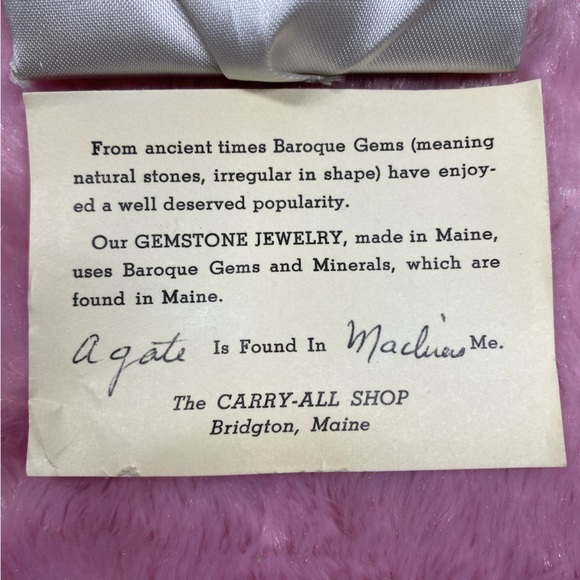 From ancient times Baroque Gems (meaning
natural stones, irregular in shape) have enjoy-
ed a well deserved popularity.
Our GEMSTONE JEWELRY, made in Maine,
uses Baroque Gems and Minerals, which are
found in Maine.
Agate Is Found In Machias Me.
The CARRY-ALL SHOP
Bridgton, Maine